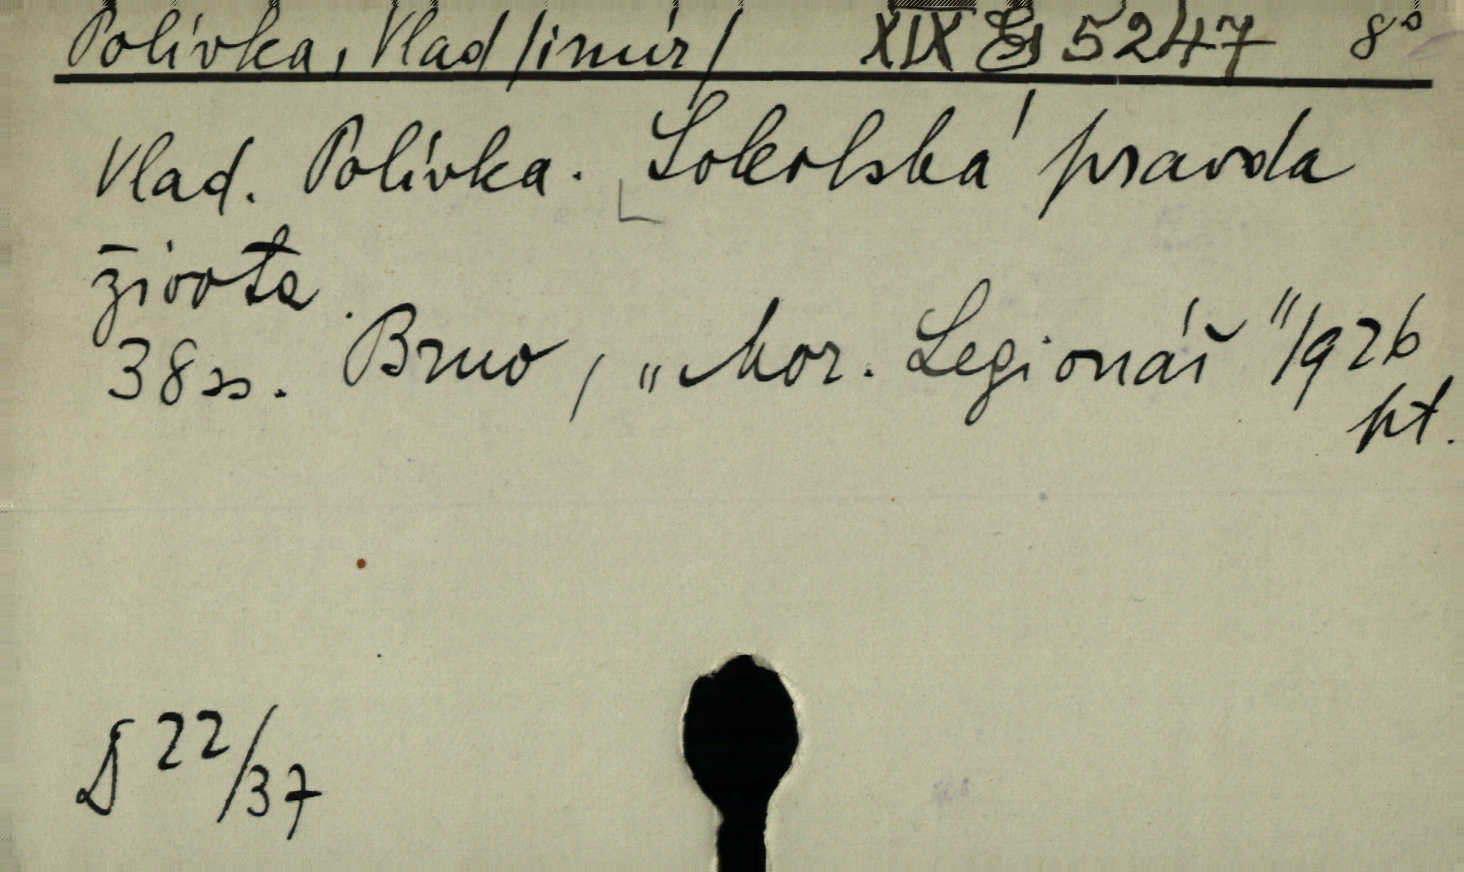 Polívka, Vlad/imír/ XIX E 5247 8°
Vlad. Polívka. Sokolská pravda
života.
38 ss. Brno, „Mor. Legionář" 1926
př.
D 22/37